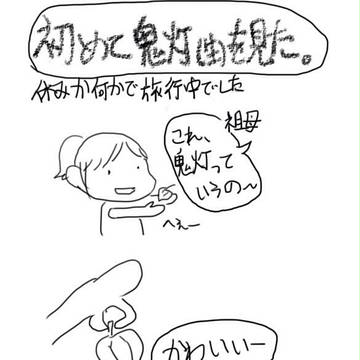 初めて鬼灯由も見た。
休みか何かで旅行中でした
祖母
これ、
鬼灯って
いうの〜
へぇー
かわいいー